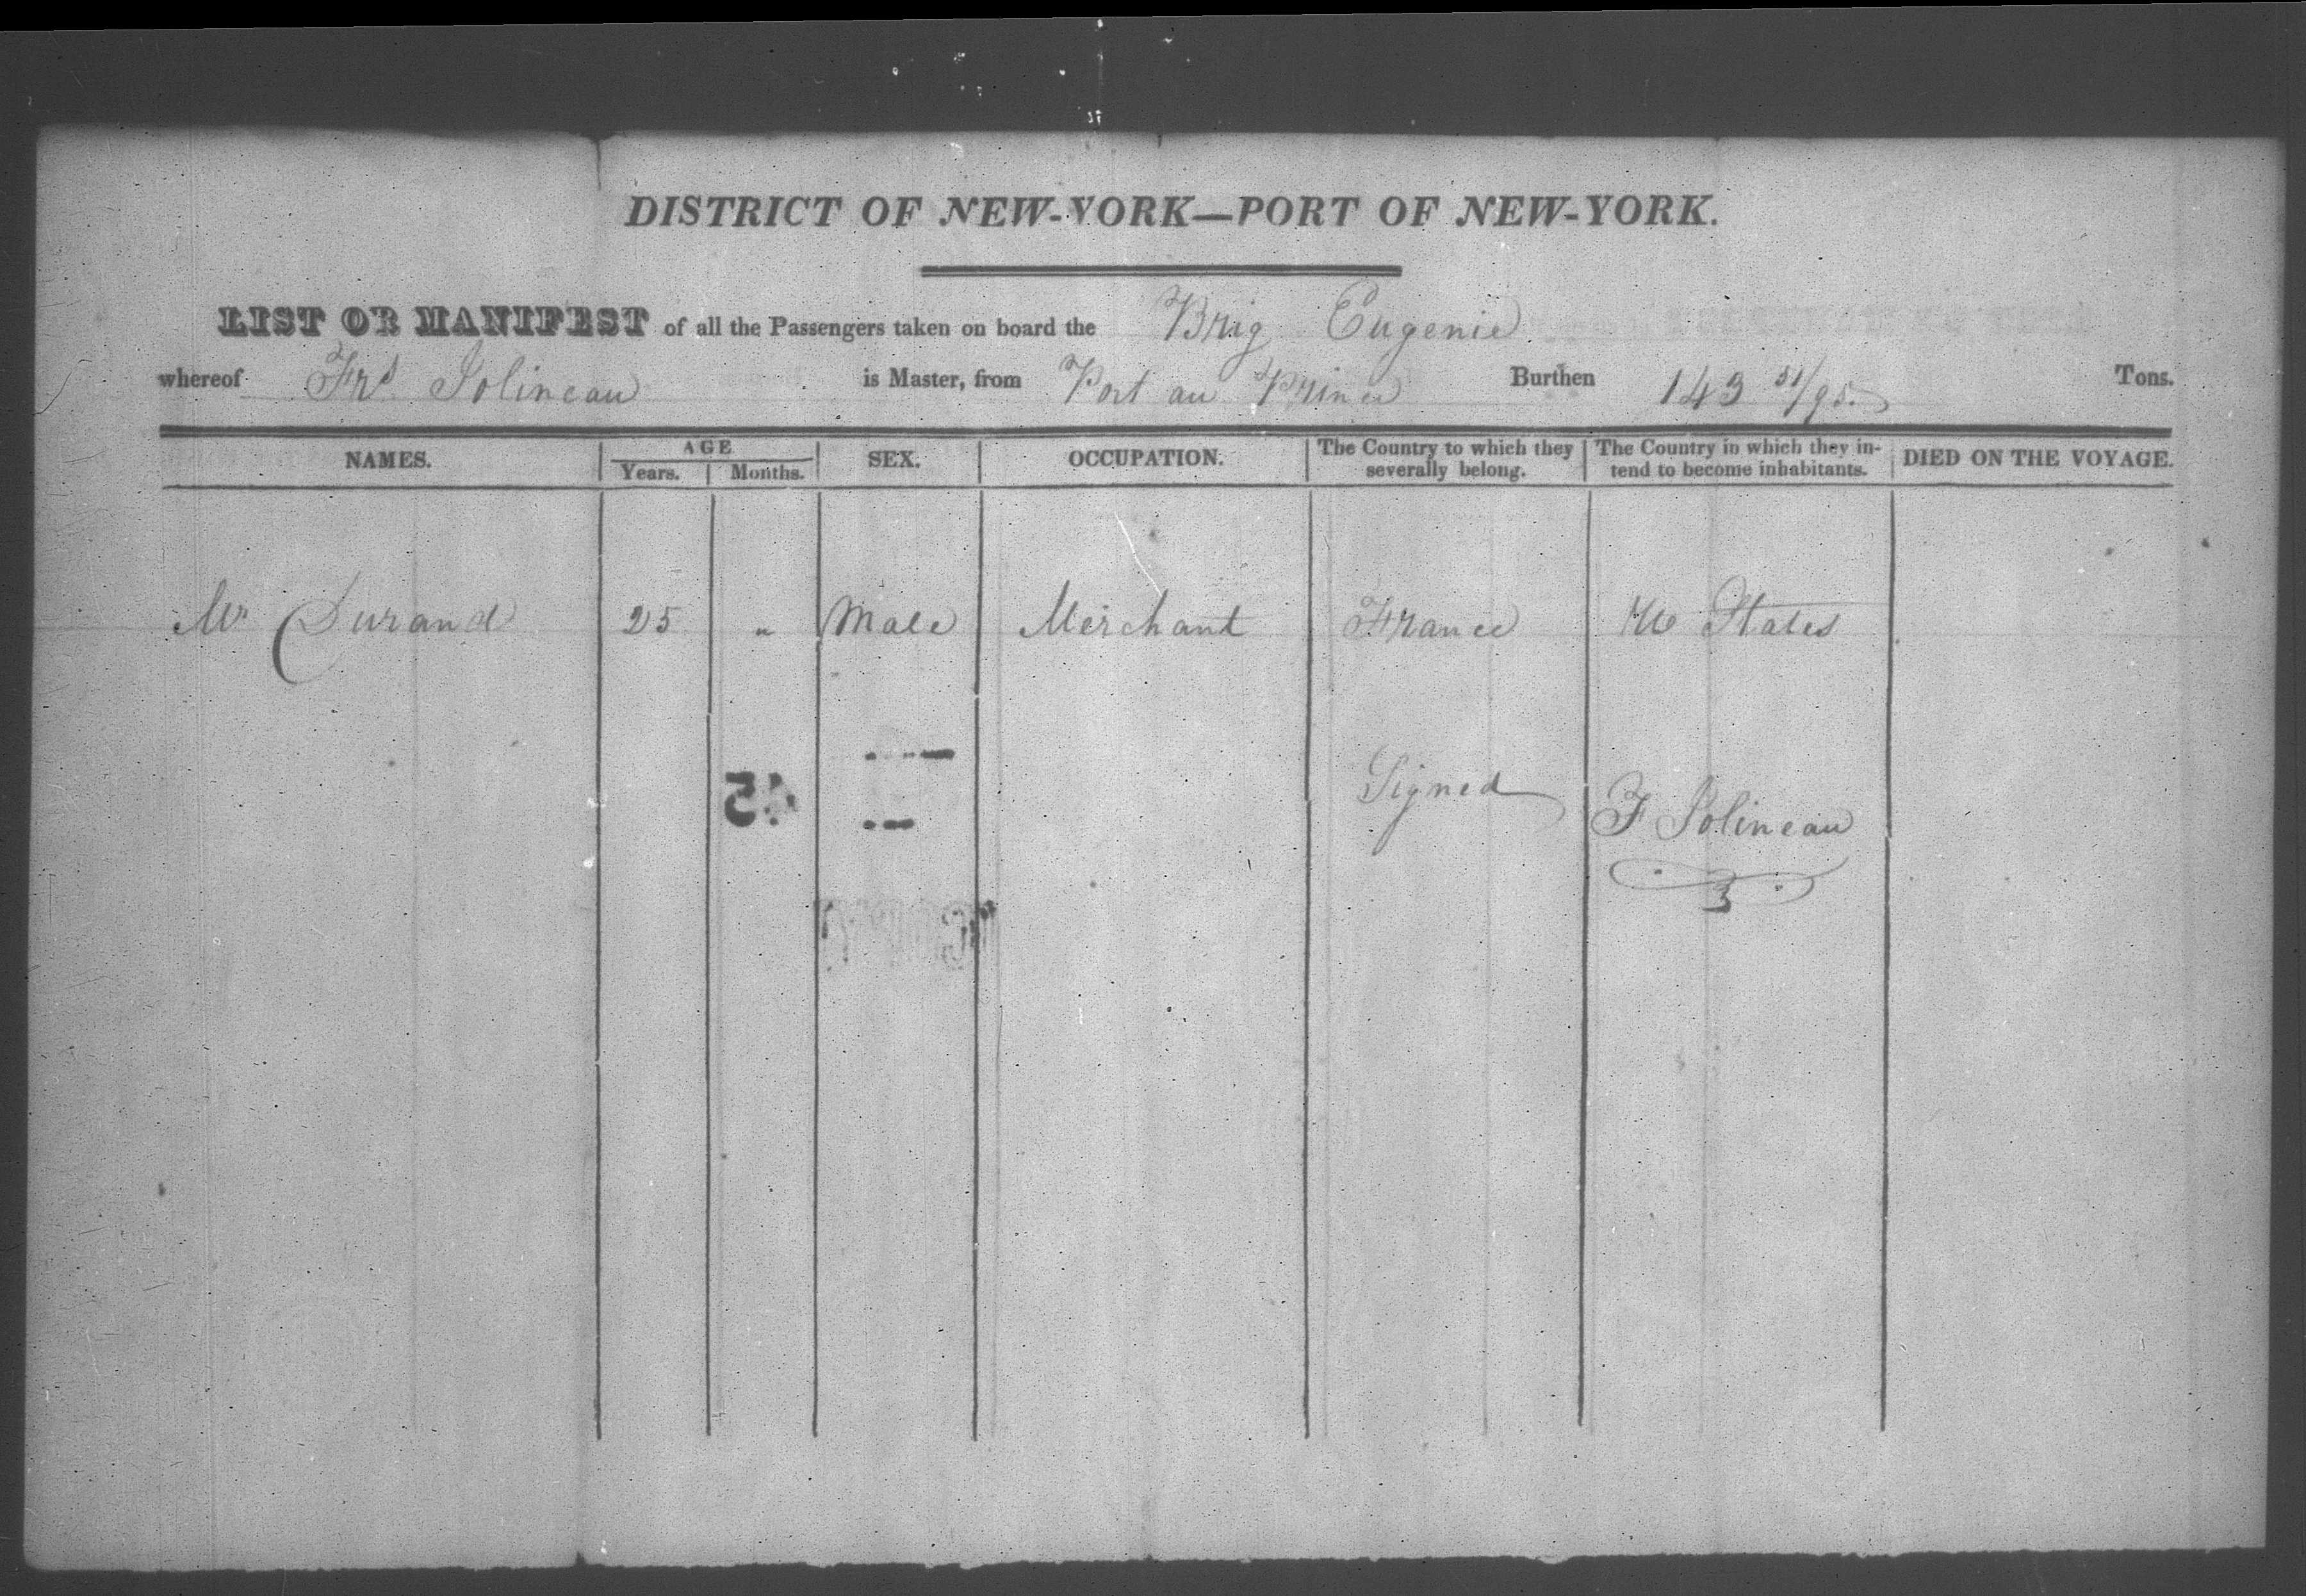 DISTRICT OF NEW-YORK—PORT OF NEW-YORK.
LIST OR MANIFEST of all the Passengers taken on board the Brig Eugenie
whereof Frs Jolineau is Master, from Port au Prince Burthen 143 51/95. Tons.
NAMES. AGE Years. Months. SEX. OCCUPATION. The Country to which they severally belong. The Country in which they intend to become inhabitants. DIED ON THE VOYAGE.
Mr Durand 25 " Male Merchant France U States
Signed
F Jolineau